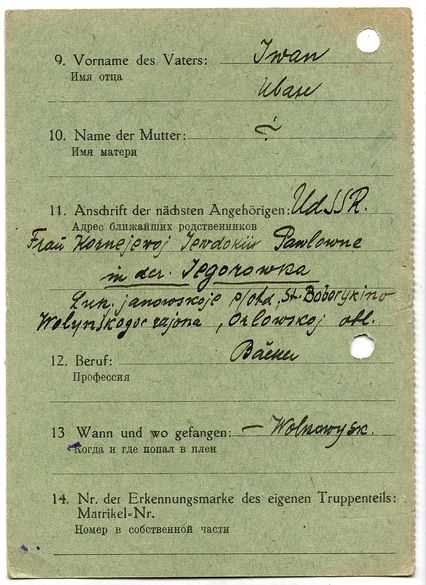 9. Vorname des Vaters: Iwan
Имя отца
Иван
10. Name der Mutter:
Имя матери
11. Anschrift der nächsten Angehörigen: UdSSR.
Адрес ближайших родственников
Frau Kornejewoj Jewdokii Pawlowne
in der. Jegorowka
p/otd, St. Boborykino
Wolynskogo rajona, Orlowskoj obl.
12. Beruf:
Профессия
13 Wann und wo gefangen: – Wolnowysk.
Когда и где попал в плен
14. Nr. der Erkennungsmarke des eigenen Truppenteils:
Matrikel-Nr.
Номер в собственной части